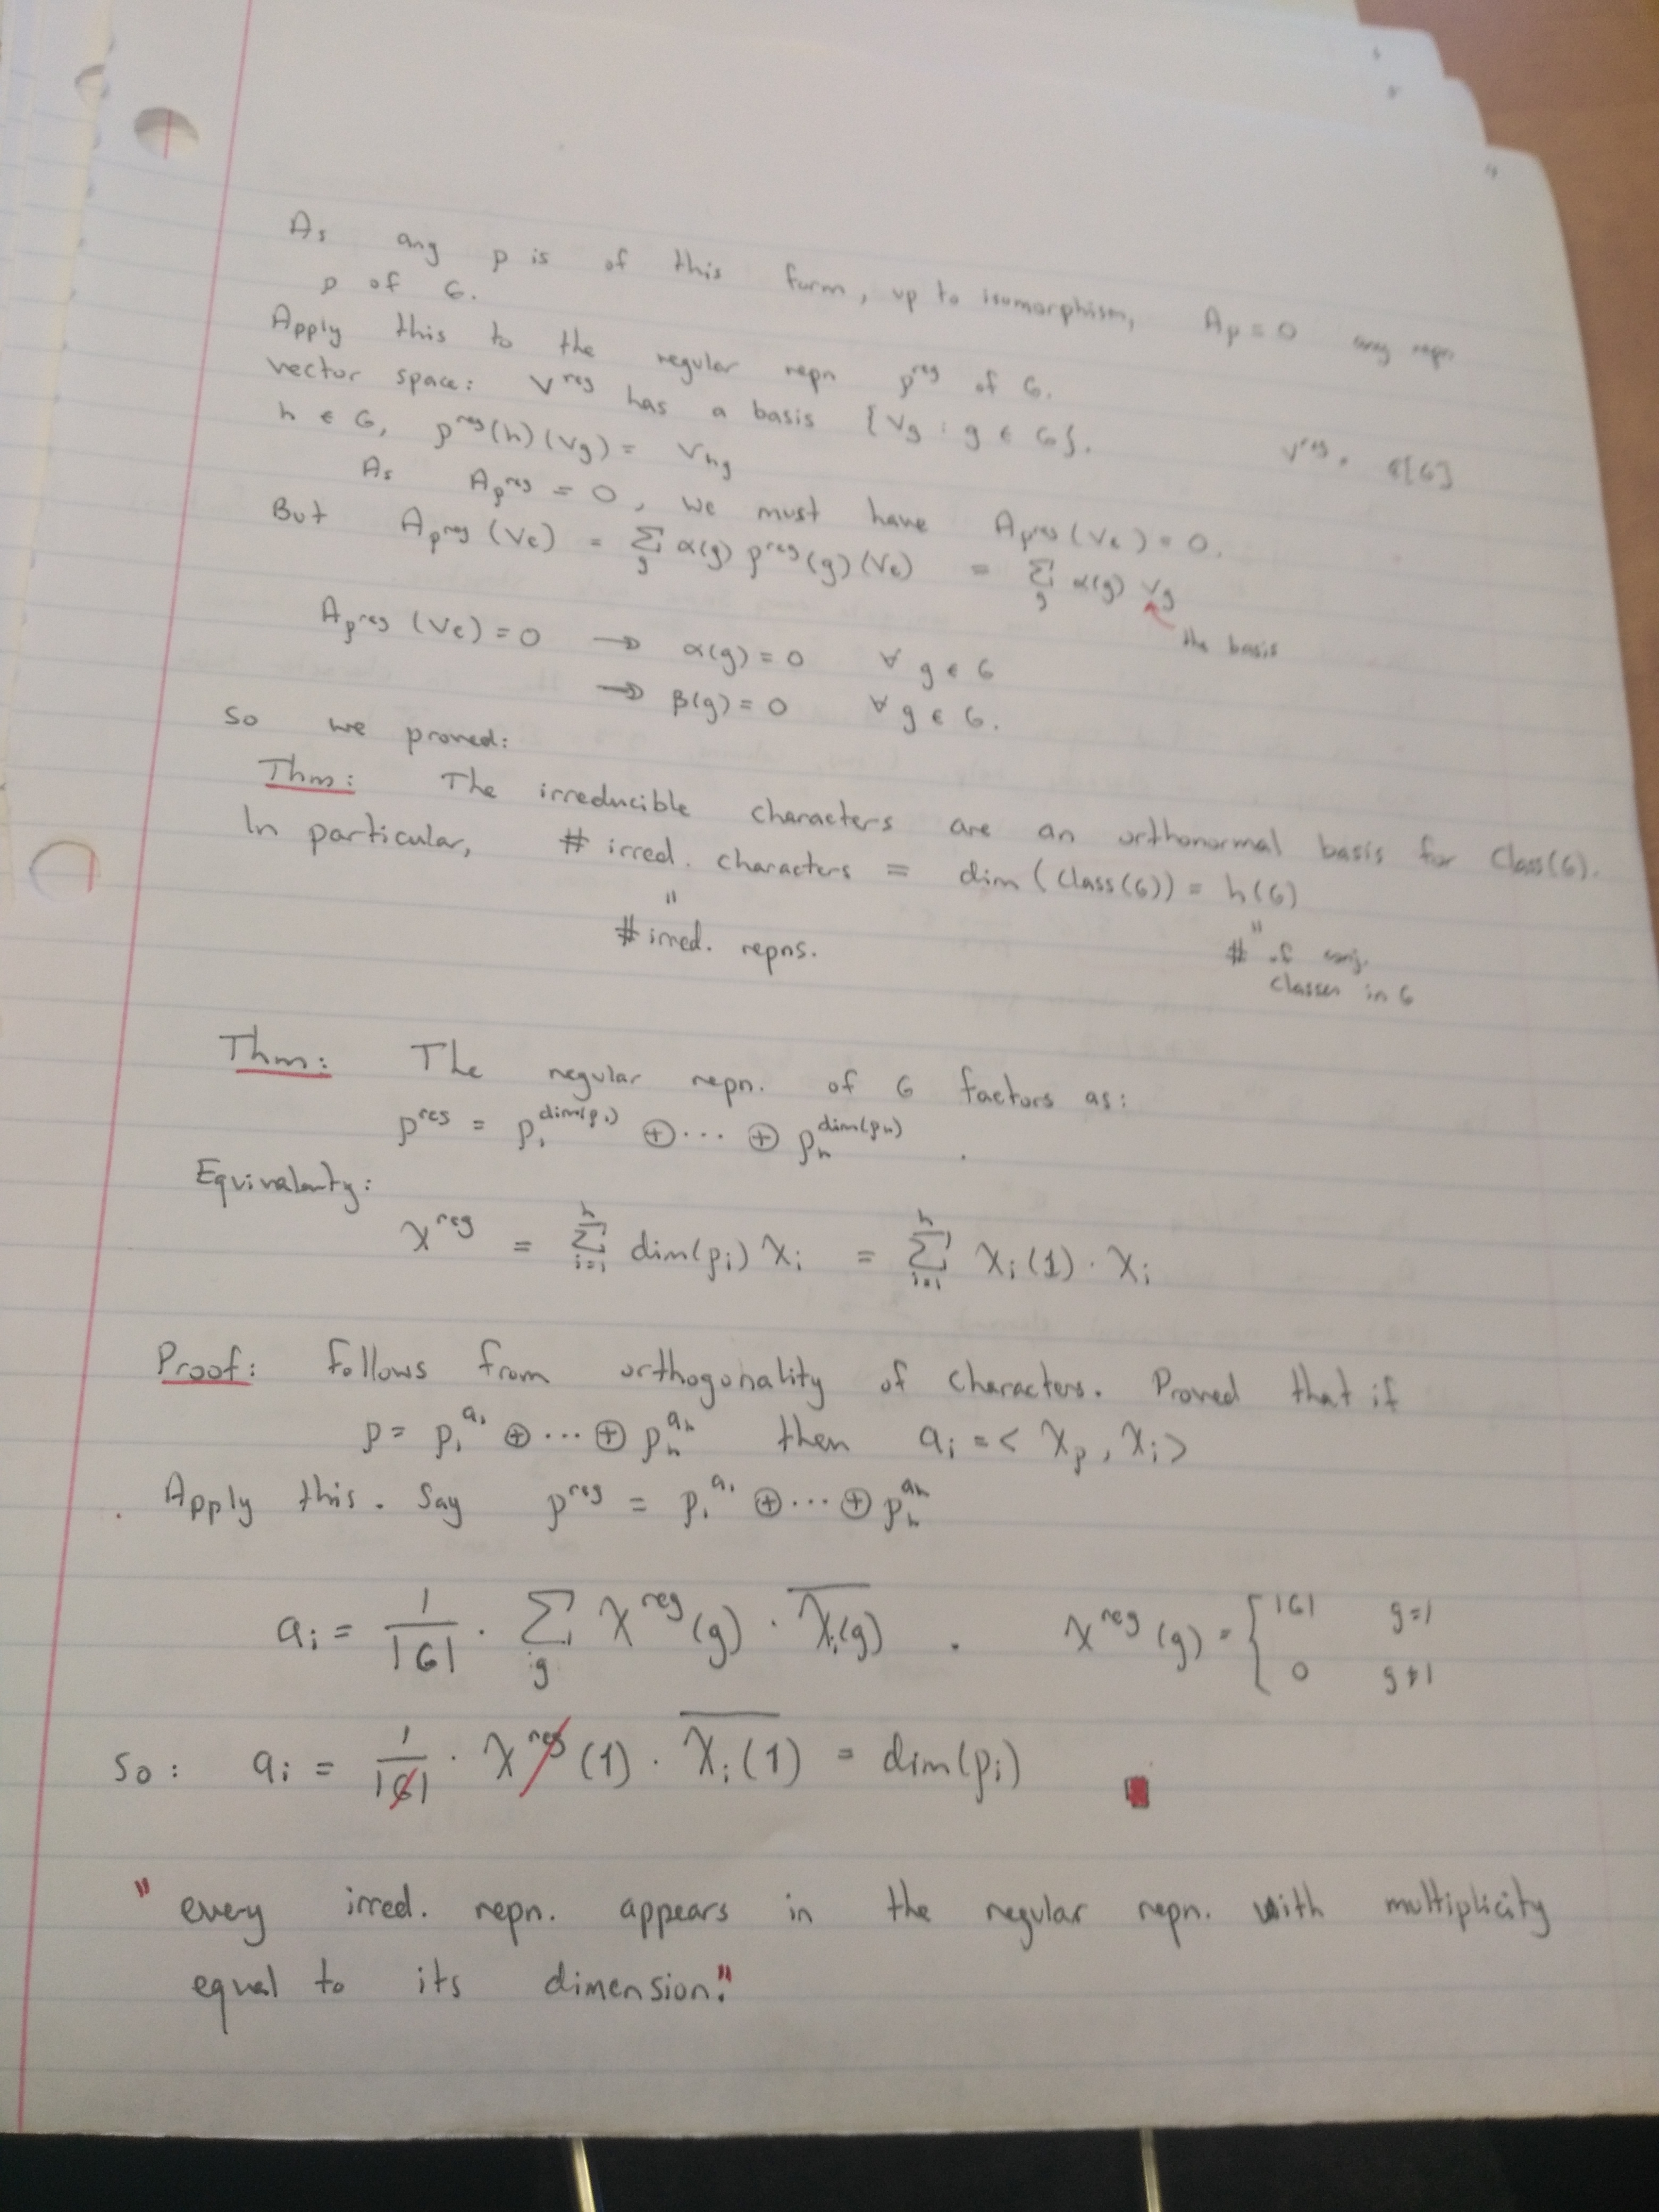 As any ρ is of this form, up to isomorphism, A_ρ = 0 any repn
ρ of G.
Apply this to the regular repn ρ^reg of G.
vector space: V^reg has a basis {v_g : g ∈ G}. V^reg = ℂ[G]
h ∈ G, ρ^reg(h)(v_g) = v_hg
As A_ρ^reg = 0, we must have A_ρ^reg(v_e) = 0.
But A_ρ^reg (v_e) = Σ_g α(g) ρ^reg(g)(v_e) = Σ_g α(g) v_g
the basis
A_ρ^reg (v_e) = 0 → α(g) = 0 ∀ g ∈ G
→ β(g) = 0 ∀ g ∈ G.
So we proved:
Thm: The irreducible characters are an orthonormal basis for Class(G).
In particular, # irred. characters = dim(Class(G)) = h(G)
" "
# irred. repns. # of conj.
classes in G
Thm: The regular repn. of G factors as:
ρ^reg = ρ_1^dim(ρ_1) ⊕ ··· ⊕ ρ_h^dim(ρ_h).
Equivalently:
χ^reg = Σ_{i=1}^h dim(ρ_i) χ_i = Σ_{i=1}^h χ_i(1) · χ_i
Proof: Follows from orthogonality of characters. Proved that if
ρ = ρ_1^a_1 ⊕ ··· ⊕ ρ_h^a_h then a_i = < χ_ρ, χ_i >
Apply this. Say ρ^reg = ρ_1^a_1 ⊕ ··· ⊕ ρ_h^a_h
a_i = 1/|G| · Σ_g χ^reg(g) · \overline{χ_i(g)} . χ^reg(g) = { |G| g=1
0 g≠1
So: a_i = 1/|G| · χ^reg(1) · \overline{χ_i(1)} = dim(ρ_i)
"every irred. repn. appears in the regular repn. with multiplicity
equal to its dimension."